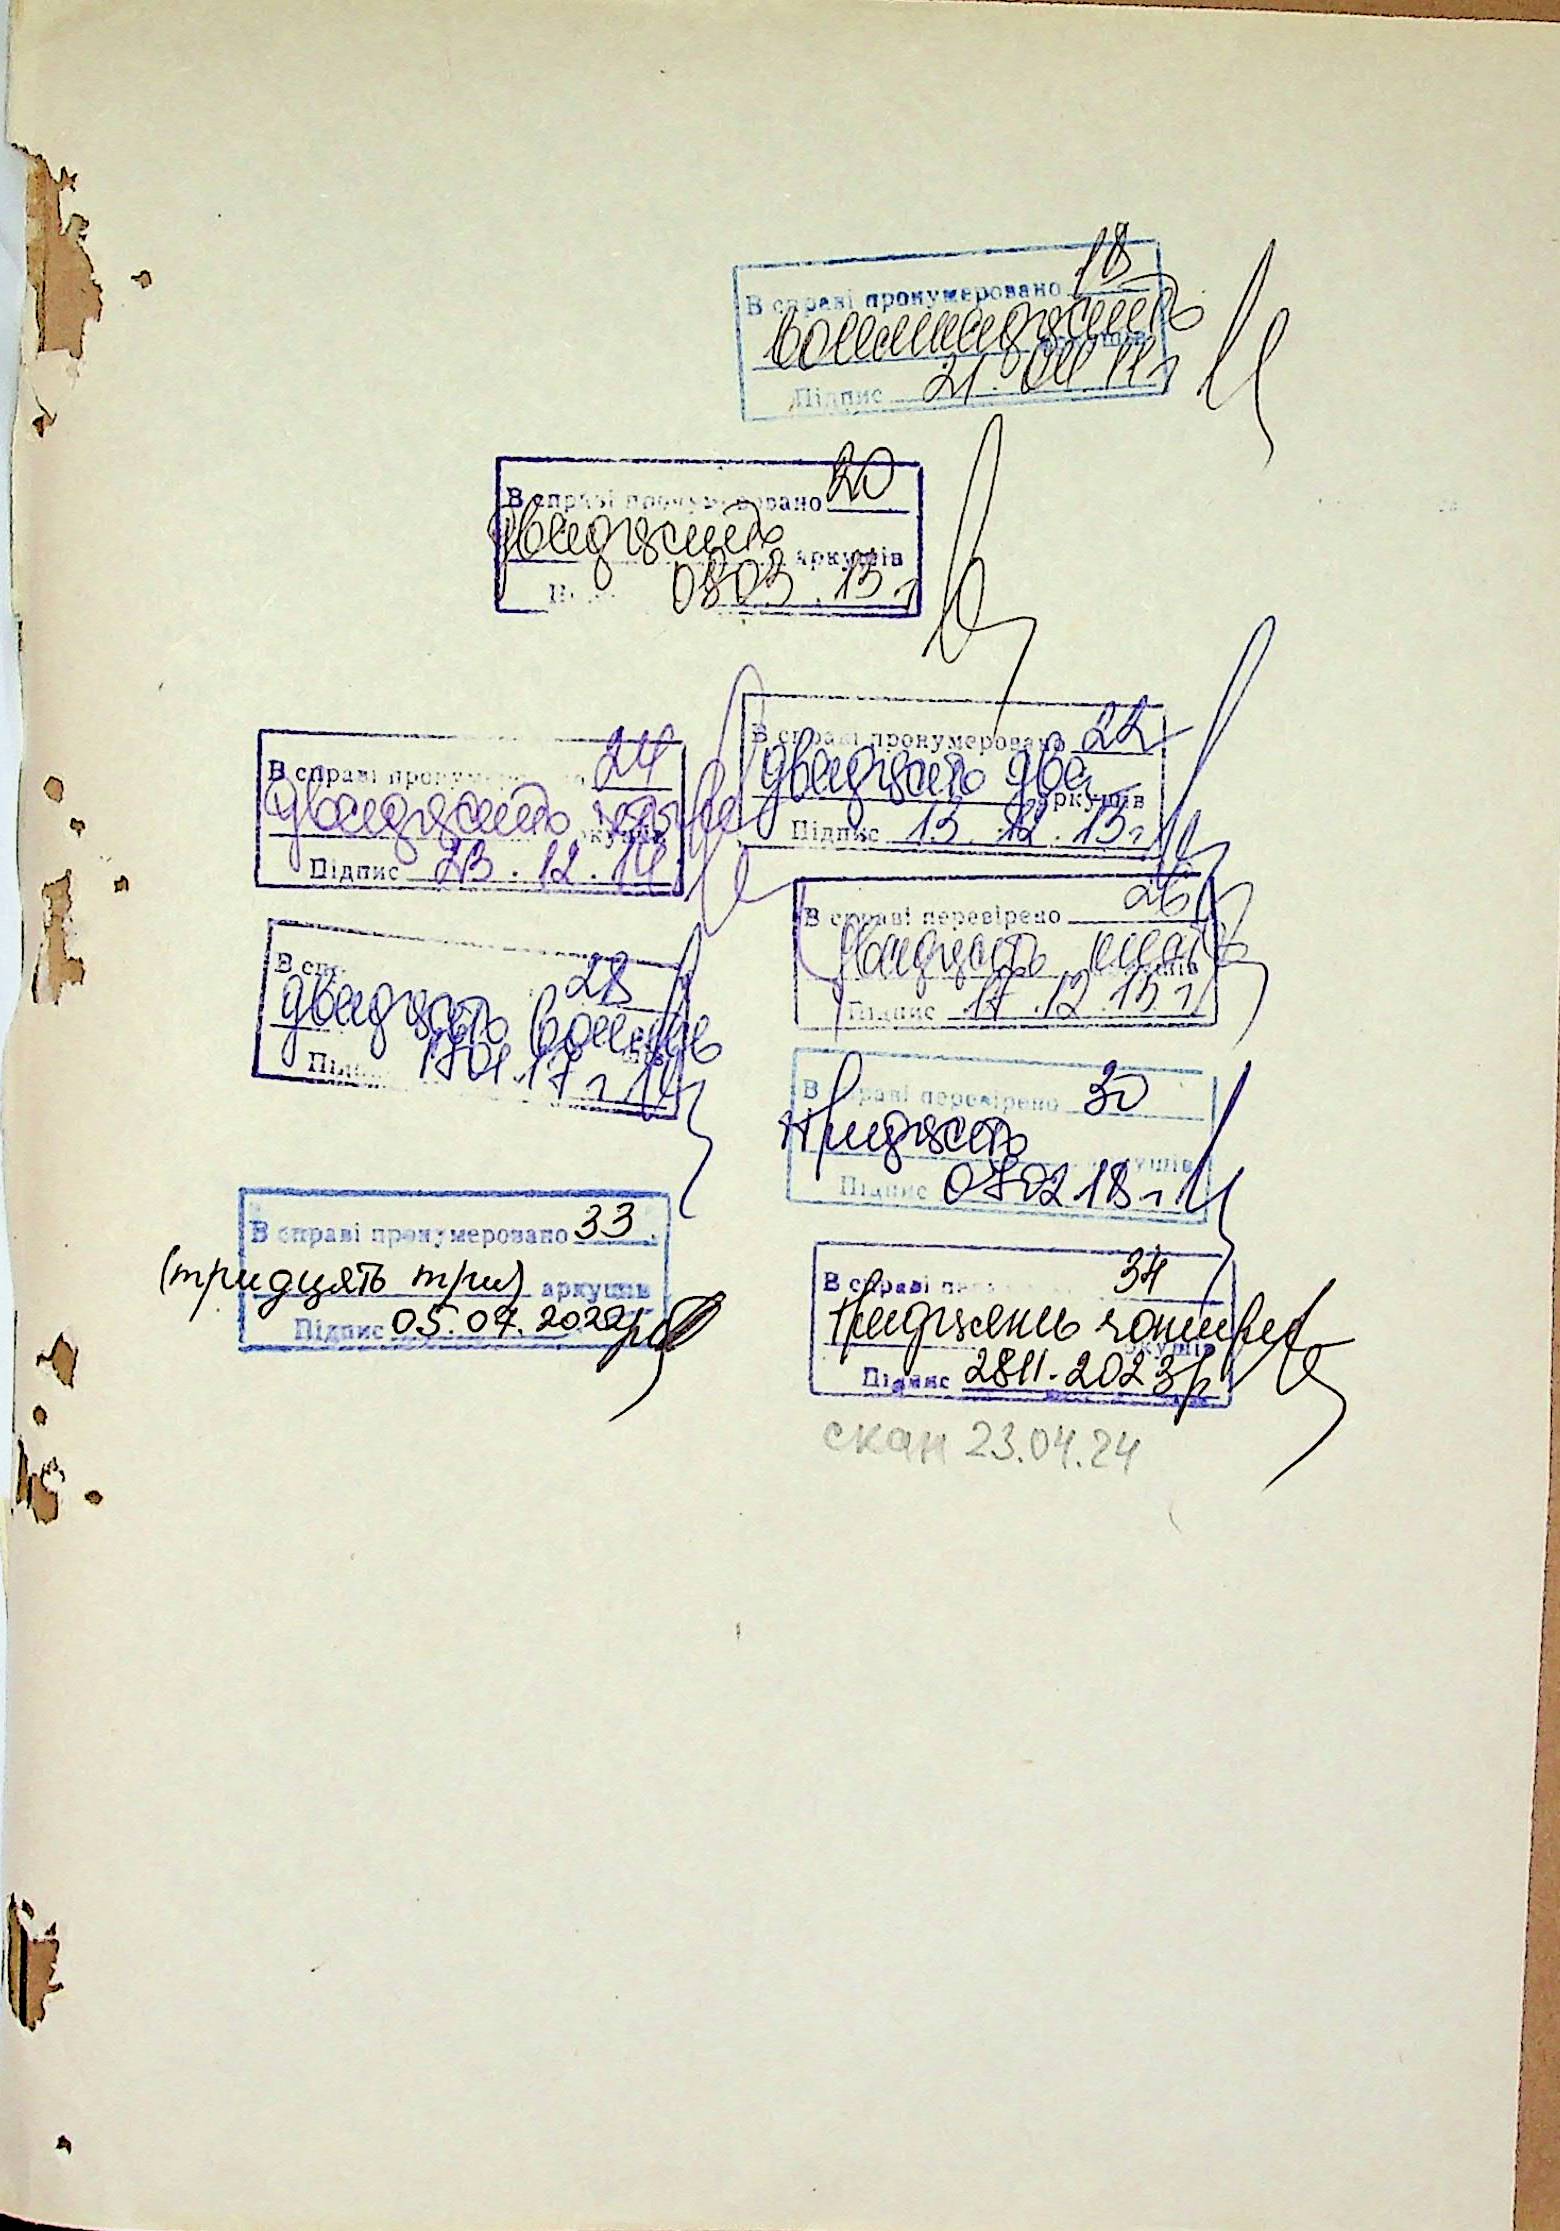 В справі пронумеровано 18
вісімнадцять аркушів
Підпис 21. 11 г
В справі пронумеровано 20
двадцять аркушів
0803.13 г
В справі пронумеровано 22
двадцять два аркушів
Підпис 13.12.13 г
В справі пронумеровано 24
двадцять аркушів
Підпис 23.12.14
В справі перевірено 26
двадцять шість аркушів
Підпис 17.12.15 г
В справі 28
двадцять вісім
Підпис 1701.17 г
В справі перевірено 30
тридцять аркушів
Підпис 0702 18 г
В справі пронумеровано 33
(тридцять три) аркушів
Підпис 05.07.2022р
В справі 34
тридцять чотири аркушів
Підпис 2811.2023р
скан 23.04.24